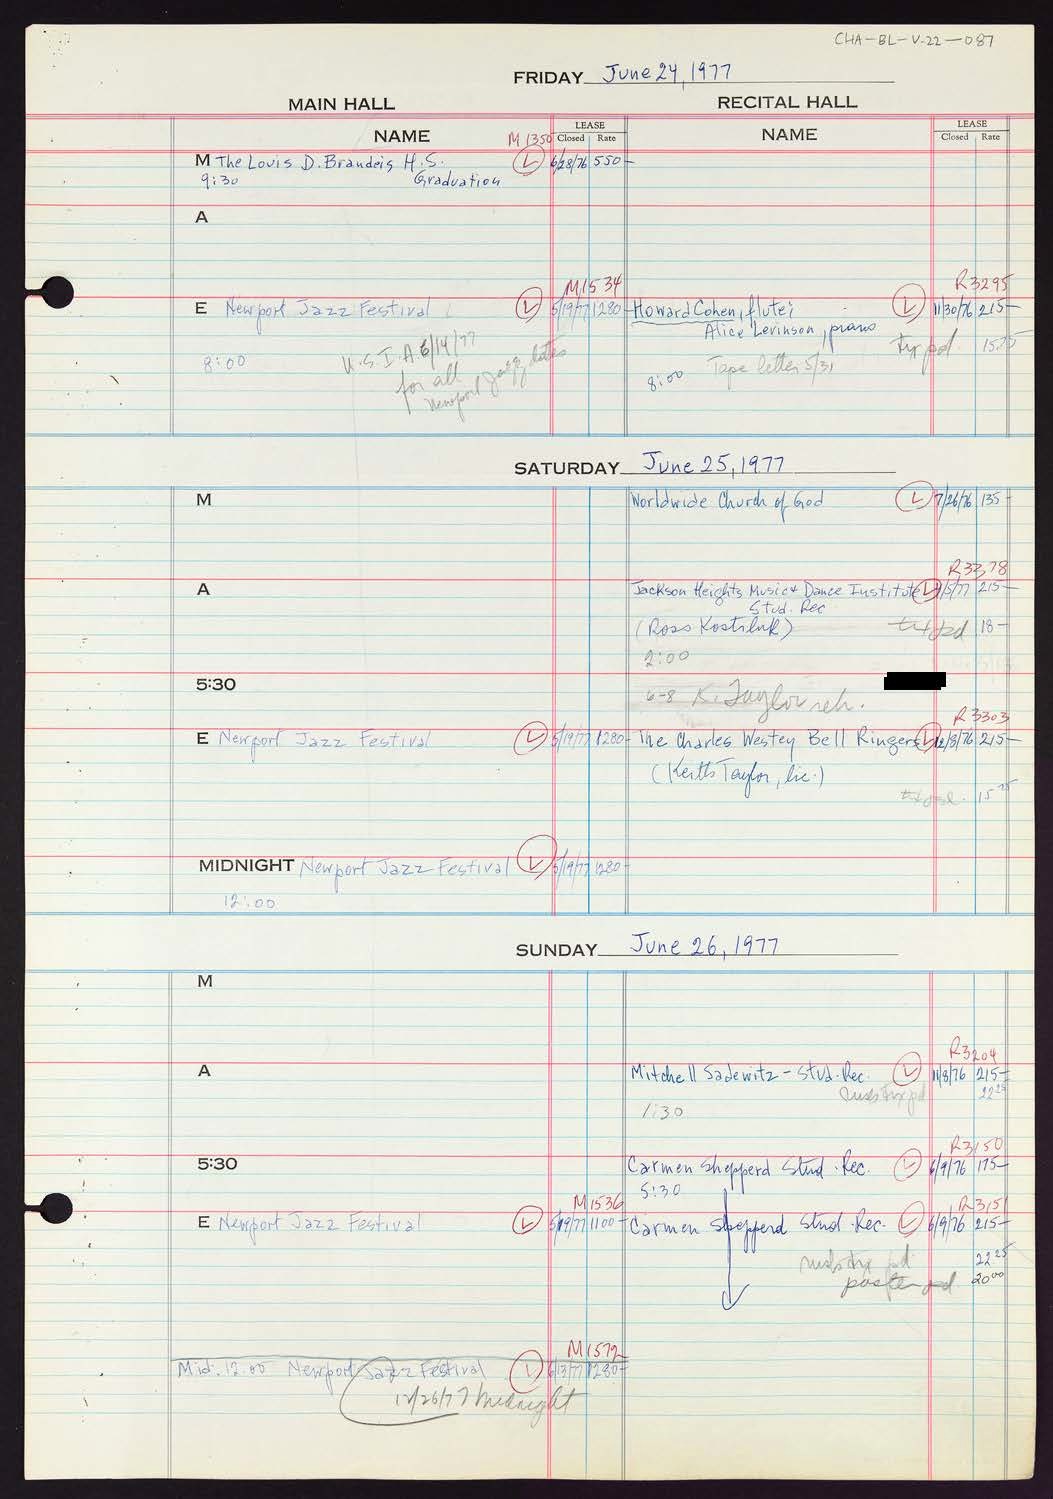 CHA-BL-V-22-087
FRIDAY June 24, 1977
MAIN HALL RECITAL HALL
NAME LEASE Closed Rate NAME LEASE Closed Rate
M1350
M The Louis D. Brandeis H.S. L 6/28/76 550-
9:30 Graduation
A
M1534 R3295
E Newport Jazz Festival L 5/19/77 1280- Howard Cohen, flute; L 11/30/76 215-
Alice Levinson, piano
8:00 U.S.I.A. 6/14/77 8:00 Tape letter 5/31 pd. 15.75
for all
Newport Jazz dates
SATURDAY June 25, 1977
M Worldwide Church of God L 7/26/76 135-
R3378
A Jackson Heights Music & Dance Institute L 215-
Stud. Rec
(Ross Kostiluk) pd 18-
2:00
5:30
6-8 K. Taylor reh.
R3303
E Newport Jazz Festival L 5/19/77 1280- The Charles Westey Bell Ringers L 12/8/76 215-
(Keith Taylor, lic.)
15
MIDNIGHT Newport Jazz Festival L 5/19/77 1280-
12:00
SUNDAY June 26, 1977
M
R3204
A Mitchell Sadewitz - Stud. Rec. L 11/8/76 215-
pd 22 25
1:30
R3150
5:30 Carmen Shepperd Stud. Rec. L 6/9/76 175-
5:30
M1536 R3151
E Newport Jazz Festival L 5/19/77 1100- Carmen Shepperd Stud. Rec. L 6/9/76 215-
pd 22 25
poster pd. 20 00
M1572
Mid. 12:00 Newport Jazz Festival L 6/13/77 1280-
12/26/77 Midnight